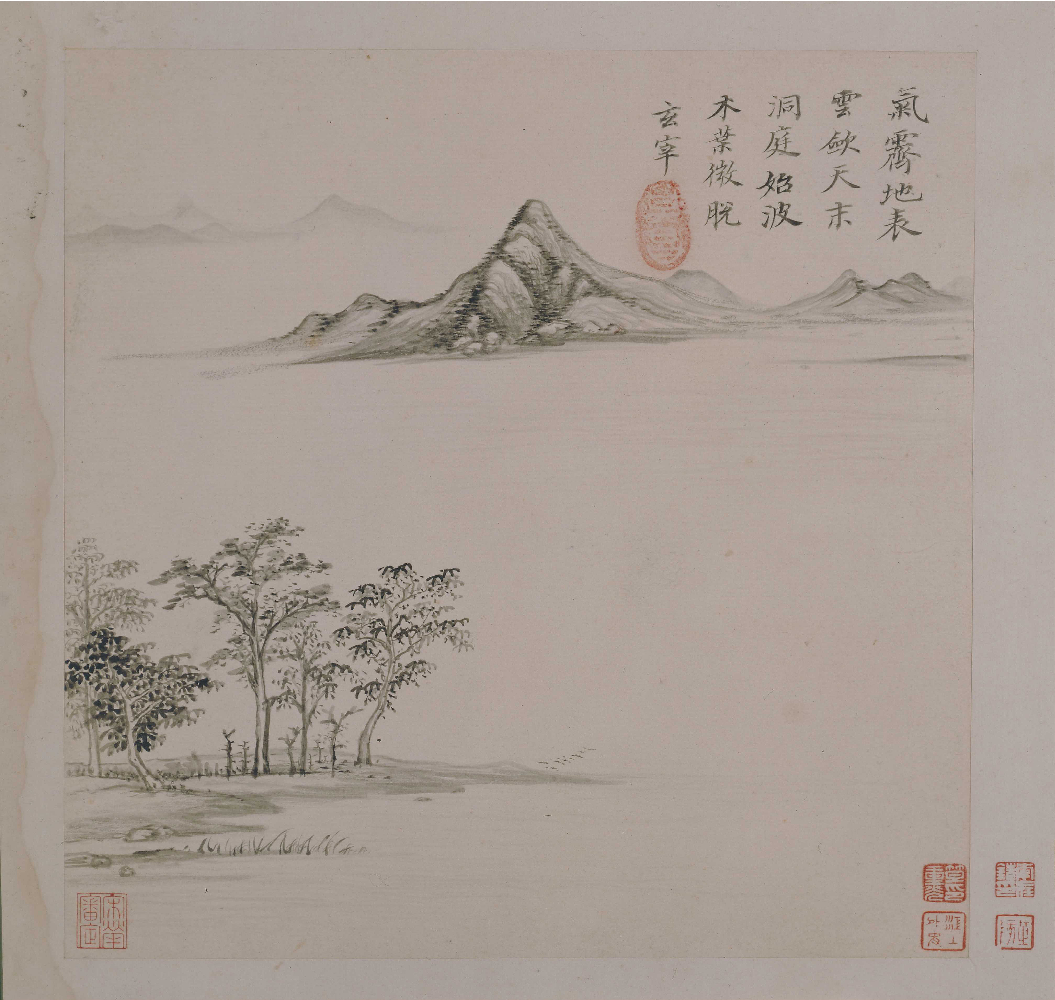 氣霽地表
雲斂天末
洞庭始波
木葉微脫
玄宰